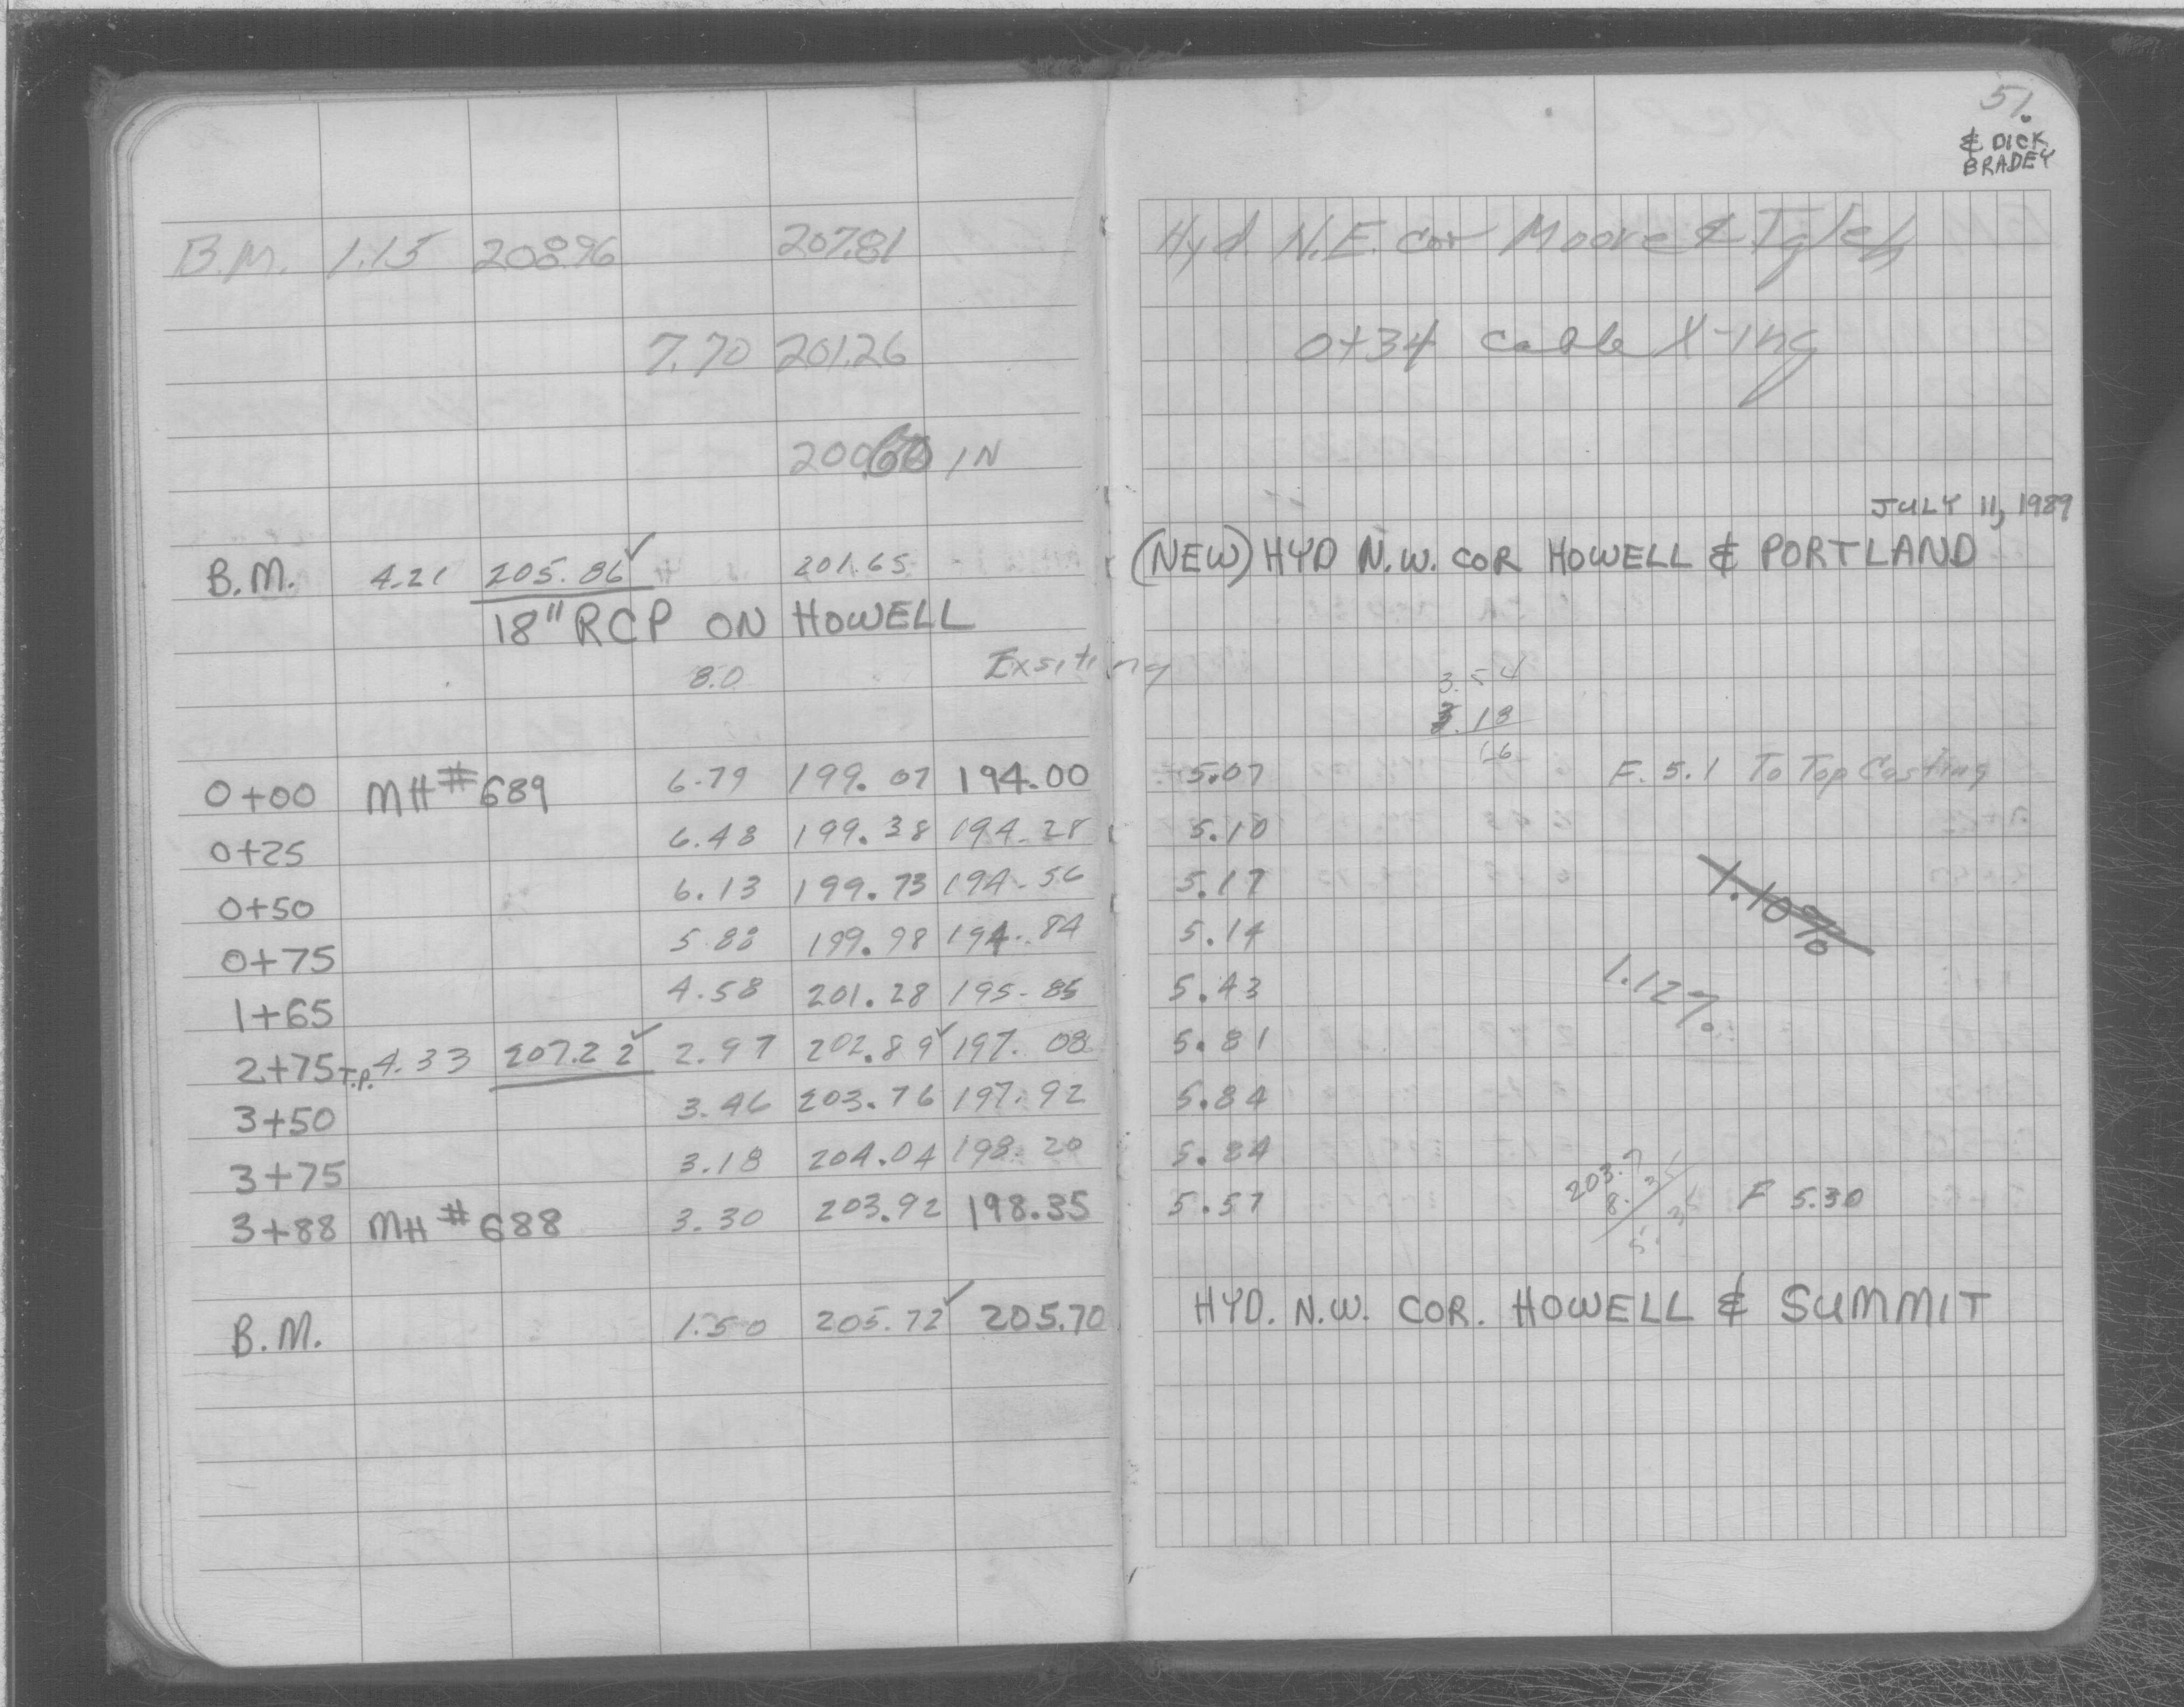 51.
& DICK
BRADEY
B.M. 1.15 208.96 207.81 Hyd. N.E. cor Moore & Tyleh
7.70 201.26 0+34 Cable X-ing
200.60 IN
JULY 11, 1989
B.M. 4.21 205.86✓ 201.65 (NEW) HYD N.W. COR HOWELL & PORTLAND
18" RCP ON HOWELL
8.0 Exsiting
3.54
3.18
16
0+00 MH #689 6.79 199.07 194.00 5.07 F. 5.1 To Top Casting
0+25 6.48 199.38 194.28 5.10
0+50 6.13 199.73 194.56 5.17
1.10%
0+75 5.88 199.98 194.84 5.14
1+65 4.58 201.28 195.85 5.43
1.12%
2+75 T.P. 4.33 207.22✓ 2.97 202.89✓ 197.08 5.81
3+50 3.46 203.76 197.92 5.84
3+75 3.18 204.04 198.20 5.84
3+88 MH #688 3.30 203.92 198.35 5.57 F 5.30
B.M. 1.50 205.72✓ 205.70 HYD. N.W. COR. HOWELL & SUMMIT